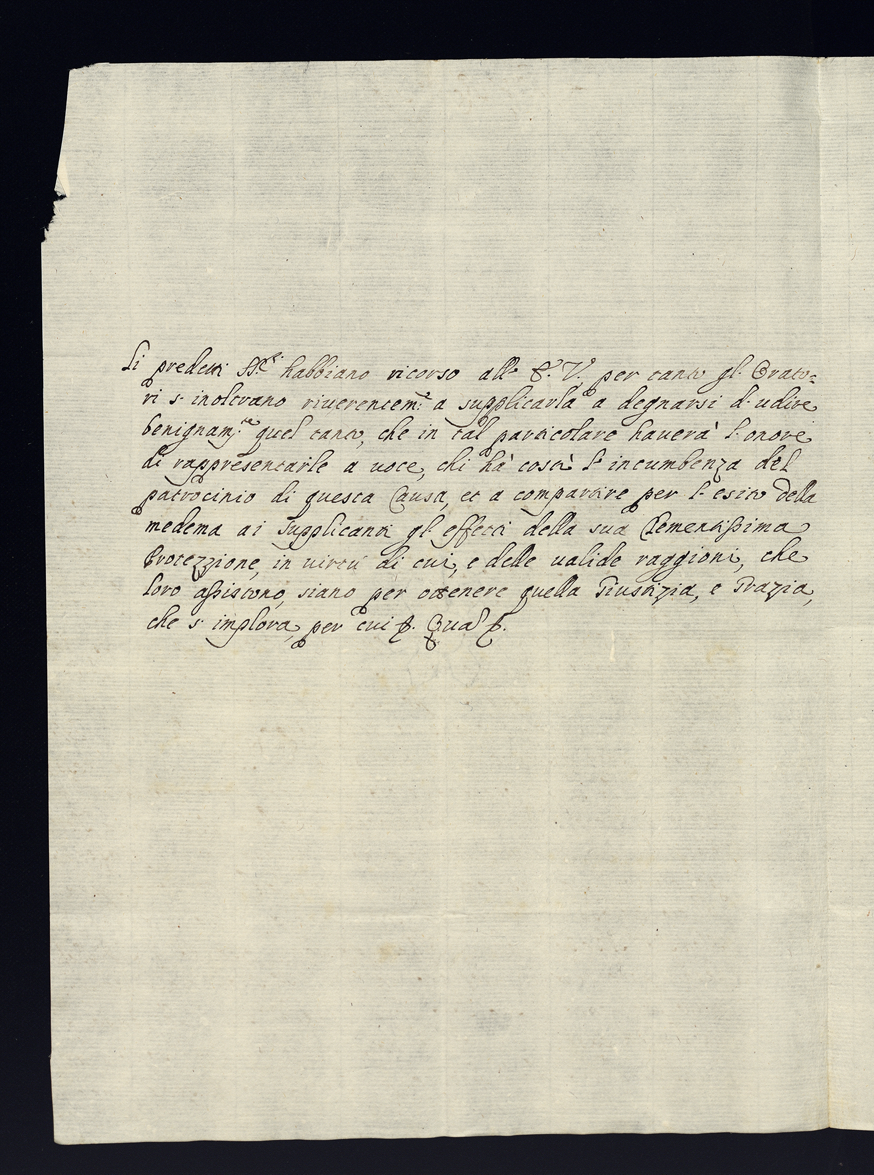 Li predetti habbiano ricorso all' E. V. per tanto gl' Orato=
ri s' inoltrano riverentem.e a supplicarla a degnarsi d' udire
benignam.te quel tanto, che in tal particolare haverà l' onore
di rappresentarle a voce, chi hà costì l' incumbenza del
patrocinio di questa Causa, et a compartire per l' esito della
medema ai Supplicanti gl' effetti della sua Clementissima
Protezzione, in virtù di cui, e delle valide raggioni, che
loro assistono, siano per ottenere quella Giustizia, e Grazia,
che s' implora, per cui &. Qua &.